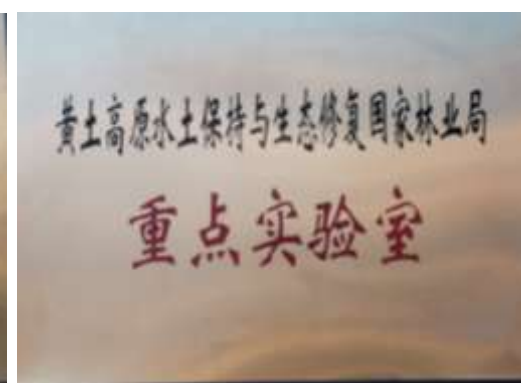 黄土高原水土保持与生态修复国家林业局
重点实验室